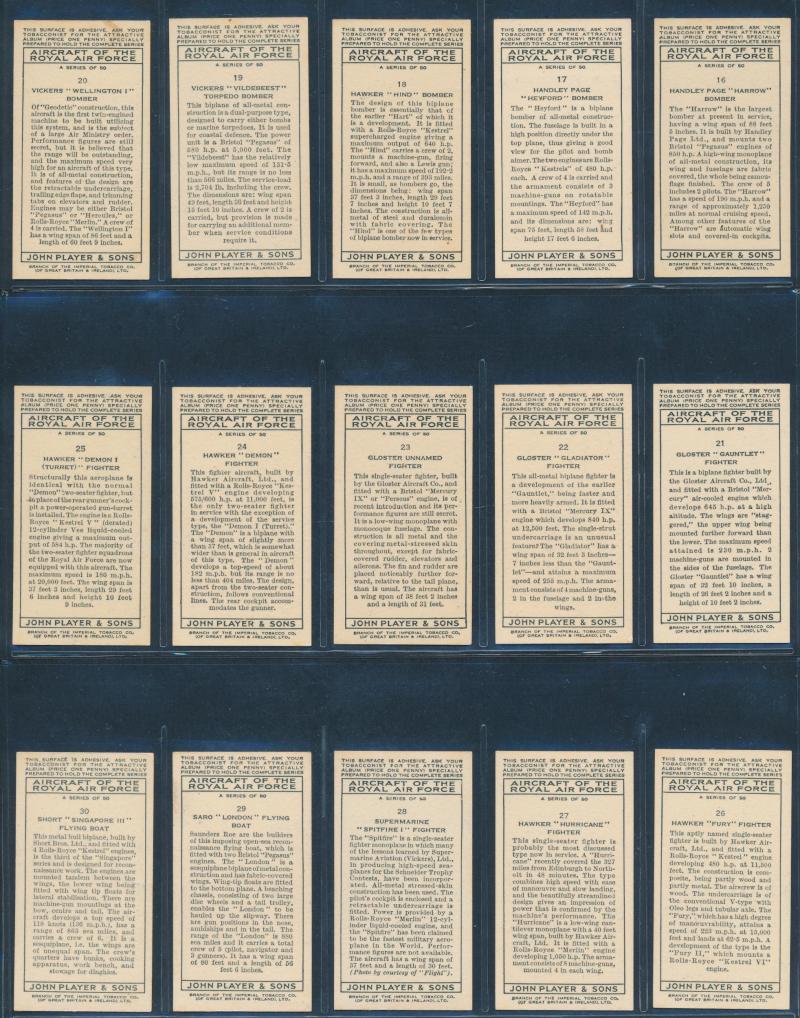 THIS SURFACE IS ADHESIVE. ASK YOUR
TOBACCONIST FOR THE ATTRACTIVE
ALBUM (PRICE ONE PENNY) SPECIALLY
PREPARED TO HOLD THE COMPLETE SERIES
AIRCRAFT OF THE
ROYAL AIR FORCE
A SERIES OF 50
20
VICKERS "WELLINGTON I"
BOMBER
Of "Geodetic" construction, this
aircraft is the first twin-engined
machine to be built utilizing
this system, and is the subject
of a large Air Ministry order.
Performance figures are still
secret, but it is believed that
the range will be outstanding,
and the maximum speed very
high for an aircraft of this type.
It is of all-metal construction,
and features of the design are
the retractable undercarriage,
trailing edge flaps, and trimming
tabs on elevators and rudder.
Engines may be either Bristol
"Pegasus" or "Hercules," or
Rolls-Royce "Merlin." A crew of
4 is carried. The "Wellington I"
has a wing span of 86 feet and a
length of 60 feet 9 inches.
JOHN PLAYER & SONS
BRANCH OF THE IMPERIAL TOBACCO CO.
(OF GREAT BRITAIN & IRELAND), LTD.
THIS SURFACE IS ADHESIVE. ASK YOUR
TOBACCONIST FOR THE ATTRACTIVE
ALBUM (PRICE ONE PENNY) SPECIALLY
PREPARED TO HOLD THE COMPLETE SERIES
AIRCRAFT OF THE
ROYAL AIR FORCE
A SERIES OF 50
19
VICKERS "VILDEBEEST"
TORPEDO BOMBER
This biplane of all-metal con-
struction is a dual-purpose type,
designed to carry either bombs
or marine torpedoes. It is used
for coastal defence. The power
unit is a Bristol "Pegasus" of
580 h.p. at 5,000 feet. The
"Vildebeest" has the relatively
low maximum speed of 131·5
m.p.h., but its range is no less
than 566 miles. The service-load
is 2,704 lb. including the crew.
The dimensions are: wing span
49 feet, length 36 feet and height
15 feet 10 inches. A crew of 2 is
carried, but provision is made
for carrying an additional mem-
ber when service conditions
require it.
JOHN PLAYER & SONS
BRANCH OF THE IMPERIAL TOBACCO CO.
(OF GREAT BRITAIN & IRELAND), LTD.
THIS SURFACE IS ADHESIVE. ASK YOUR
TOBACCONIST FOR THE ATTRACTIVE
ALBUM (PRICE ONE PENNY) SPECIALLY
PREPARED TO HOLD THE COMPLETE SERIES
AIRCRAFT OF THE
ROYAL AIR FORCE
A SERIES OF 50
18
HAWKER "HIND" BOMBER
The design of this biplane
bomber is essentially that of
the earlier "Hart" of which
it is a development. It is fitted
with a Rolls-Royce "Kestrel"
supercharged engine giving a
maximum output of 640 h.p.
The "Hind" carries a crew of 2,
mounts a machine-gun, firing
forward, and also a Lewis gun;
it has a maximum speed of 192·2
m.p.h. and a range of 393 miles.
It is small, as bombers go, the
dimensions being: wing span
37 feet 3 inches, length 29 feet
7 inches and height 10 feet 7
inches. The construction is all-
metal of steel and duralumin
with fabric covering. The
"Hind" is one of the few types
of biplane bomber now in service.
JOHN PLAYER & SONS
BRANCH OF THE IMPERIAL TOBACCO CO.
(OF GREAT BRITAIN & IRELAND), LTD.
THIS SURFACE IS ADHESIVE. ASK YOUR
TOBACCONIST FOR THE ATTRACTIVE
ALBUM (PRICE ONE PENNY) SPECIALLY
PREPARED TO HOLD THE COMPLETE SERIES
AIRCRAFT OF THE
ROYAL AIR FORCE
A SERIES OF 50
17
HANDLEY PAGE
"HEYFORD" BOMBER
The "Heyford" is a biplane
bomber of all-metal construc-
tion. The fuselage is built in a
high position directly under the
top plane, thus giving a good
view for the pilot and bomb
aimer. The two engines are Rolls-
Royce "Kestrels" of 480 h.p.
each. A crew of 4 is carried and
the armament consists of 3
machine-guns on rotatable
mountings. The "Heyford" has
a maximum speed of 142 m.p.h.
and its dimensions are: wing
span 75 feet, length 58 feet and
height 17 feet 6 inches.
JOHN PLAYER & SONS
BRANCH OF THE IMPERIAL TOBACCO CO.
(OF GREAT BRITAIN & IRELAND), LTD.
THIS SURFACE IS ADHESIVE. ASK YOUR
TOBACCONIST FOR THE ATTRACTIVE
ALBUM (PRICE ONE PENNY) SPECIALLY
PREPARED TO HOLD THE COMPLETE SERIES
AIRCRAFT OF THE
ROYAL AIR FORCE
A SERIES OF 50
16
HANDLEY PAGE "HARROW"
BOMBER
The "Harrow" is the largest
bomber at present in service,
having a wing span of 88 feet
5 inches. It is built by Handley
Page Ltd., and mounts two
Bristol "Pegasus" engines of
850 h.p. A high-wing monoplane
of all-metal construction, its
wing and fuselage are fabric
covered, the whole being camou-
flage finished. The crew of 5
includes 2 pilots. The "Harrow"
has a speed of 190 m.p.h. and
a range of approximately 1,250
miles at normal cruising speed.
Among other features of the
"Harrow" are automatic wing
slots and covered-in cockpits.
JOHN PLAYER & SONS
BRANCH OF THE IMPERIAL TOBACCO CO.
(OF GREAT BRITAIN & IRELAND), LTD.
THIS SURFACE IS ADHESIVE. ASK YOUR
TOBACCONIST FOR THE ATTRACTIVE
ALBUM (PRICE ONE PENNY) SPECIALLY
PREPARED TO HOLD THE COMPLETE SERIES
AIRCRAFT OF THE
ROYAL AIR FORCE
A SERIES OF 50
25
HAWKER "DEMON I
(TURRET)" FIGHTER
Structurally this aeroplane is
identical with the normal
"Demon" two-seater fighter, but
in place of the rear gunner's cock-
pit a power-operated gun-turret
is installed. The engine is a Rolls-
Royce "Kestrel V" (derated)
12-cylinder Vee liquid-cooled
engine giving a maximum out-
put of 584 h.p. The majority of
the two-seater fighter squadrons
of the Royal Air Force are now
equipped with this aircraft. The
maximum speed is 180 m.p.h.
at 20,000 feet. The wing span is
37 feet 3 inches, length 29 feet
6 inches and height 10 feet
9 inches.
JOHN PLAYER & SONS
BRANCH OF THE IMPERIAL TOBACCO CO.
(OF GREAT BRITAIN & IRELAND), LTD.
THIS SURFACE IS ADHESIVE. ASK YOUR
TOBACCONIST FOR THE ATTRACTIVE
ALBUM (PRICE ONE PENNY) SPECIALLY
PREPARED TO HOLD THE COMPLETE SERIES
AIRCRAFT OF THE
ROYAL AIR FORCE
A SERIES OF 50
24
HAWKER "DEMON"
FIGHTER
This fighter aircraft, built by
Hawker Aircraft, Ltd., and
fitted with a Rolls-Royce "Kes-
trel V" engine developing
575/600 h.p. at 11,000 feet, is
the only two-seater fighter
in service with the exception of
a development of the service
type, the "Demon I (Turret)."
The "Demon" is a biplane with
a wing span of slightly more
than 37 feet, which is somewhat
wider than is general in aircraft
of this type. The "Demon"
develops a top-speed of about
182 m.p.h. but its range is no less
than 404 miles. The design,
apart from the two-seater con-
struction, follows conventional
lines. The rear cockpit accom-
modates the gunner.
JOHN PLAYER & SONS
BRANCH OF THE IMPERIAL TOBACCO CO.
(OF GREAT BRITAIN & IRELAND), LTD.
THIS SURFACE IS ADHESIVE. ASK YOUR
TOBACCONIST FOR THE ATTRACTIVE
ALBUM (PRICE ONE PENNY) SPECIALLY
PREPARED TO HOLD THE COMPLETE SERIES
AIRCRAFT OF THE
ROYAL AIR FORCE
A SERIES OF 50
23
GLOSTER UNNAMED
FIGHTER
This single-seater fighter, built
by the Gloster Aircraft Co., and
fitted with a Bristol "Mercury
IX" or "Perseus" engine, is of
recent introduction and its per-
formance figures are still secret.
It is a low-wing monoplane with
monocoque fuselage. The con-
struction is all metal and the
covering metal-stressed skin
throughout, except for fabric-
covered rudder, elevators and
ailerons. The fin and rudder are
placed noticeably further for-
ward, relative to the tail plane,
than is usual. The aircraft has
a wing span of 38 feet 2 inches
and a length of 31 feet.
JOHN PLAYER & SONS
BRANCH OF THE IMPERIAL TOBACCO CO.
(OF GREAT BRITAIN & IRELAND), LTD.
THIS SURFACE IS ADHESIVE. ASK YOUR
TOBACCONIST FOR THE ATTRACTIVE
ALBUM (PRICE ONE PENNY) SPECIALLY
PREPARED TO HOLD THE COMPLETE SERIES
AIRCRAFT OF THE
ROYAL AIR FORCE
A SERIES OF 50
22
GLOSTER "GLADIATOR"
FIGHTER
This all-metal biplane fighter is
a development of the earlier
"Gauntlet," being faster and
more heavily armed. It is fitted
with a Bristol "Mercury IX"
engine which develops 840 h.p.
at 12,500 feet. The single-strut
undercarriage is an unusual
feature. The "Gladiator" has a
wing span of 32 feet 3 inches—
7 inches less than the "Gaunt-
let"—and attains a maximum
speed of 255 m.p.h. The arma-
ment consists of 4 machine-guns,
2 in the fuselage and 2 in the
wings.
JOHN PLAYER & SONS
BRANCH OF THE IMPERIAL TOBACCO CO.
(OF GREAT BRITAIN & IRELAND), LTD.
THIS SURFACE IS ADHESIVE. ASK YOUR
TOBACCONIST FOR THE ATTRACTIVE
ALBUM (PRICE ONE PENNY) SPECIALLY
PREPARED TO HOLD THE COMPLETE SERIES
AIRCRAFT OF THE
ROYAL AIR FORCE
A SERIES OF 50
21
GLOSTER "GAUNTLET"
FIGHTER
This is a biplane fighter built by
the Gloster Aircraft Co., Ltd.,
and fitted with a Bristol "Mer-
cury" air-cooled engine which
develops 645 h.p. at a high
altitude. The wings are "stag-
gered," the upper wing being
mounted further forward than
the lower. The maximum speed
attained is 230 m.p.h. 2
machine-guns are mounted in
the sides of the fuselage. The
Gloster "Gauntlet" has a wing
span of 32 feet 10 inches, a
length of 26 feet 2 inches and a
height of 10 feet 2 inches.
JOHN PLAYER & SONS
BRANCH OF THE IMPERIAL TOBACCO CO.
(OF GREAT BRITAIN & IRELAND), LTD.
THIS SURFACE IS ADHESIVE. ASK YOUR
TOBACCONIST FOR THE ATTRACTIVE
ALBUM (PRICE ONE PENNY) SPECIALLY
PREPARED TO HOLD THE COMPLETE SERIES
AIRCRAFT OF THE
ROYAL AIR FORCE
A SERIES OF 50
30
SHORT "SINGAPORE III"
FLYING BOAT
This metal hull biplane, built by
Short Bros. Ltd., and fitted with
4 Rolls-Royce "Kestrel" engines,
is the third of the "Singapore"
series and is designed for recon-
naissance work. The engines are
mounted tandem between the
wings, the lower wing being
fitted with wing tip floats for
lateral stabilisation. There are
machine-gun mountings at the
bow, centre and tail. The air-
craft develops a top speed of
118 knots (136 m.p.h.), has a
range of 865 sea miles, and
carries a crew of 6. It is a
sesquiplane, i.e. the wings are
of unequal span. The crew's
quarters have bunks, cooking
apparatus, work bench, and
stowage for dinghies.
JOHN PLAYER & SONS
BRANCH OF THE IMPERIAL TOBACCO CO.
(OF GREAT BRITAIN & IRELAND), LTD.
THIS SURFACE IS ADHESIVE. ASK YOUR
TOBACCONIST FOR THE ATTRACTIVE
ALBUM (PRICE ONE PENNY) SPECIALLY
PREPARED TO HOLD THE COMPLETE SERIES
AIRCRAFT OF THE
ROYAL AIR FORCE
A SERIES OF 50
29
SARO "LONDON" FLYING
BOAT
Saunders Roe are the builders
of this imposing open-sea recon-
naissance flying boat, which is
fitted with two Bristol "Pegasus"
engines. The "London" is a
sesquiplane biplane of metal con-
struction and has fabric-covered
wings. Wing-tip floats are fitted
to the bottom plane. A beaching
chassis, consisting of two large
disc wheels and a tail trolley,
enables the "London" to be
hauled up the slipway. There
are gun positions in the nose,
amidships and in the tail. The
range of the "London" is 880
sea miles and it carries a total
crew of 5 (pilot, navigator and
3 gunners). It has a wing span
of 80 feet and a length of 56
feet 6 inches.
JOHN PLAYER & SONS
BRANCH OF THE IMPERIAL TOBACCO CO.
(OF GREAT BRITAIN & IRELAND), LTD.
THIS SURFACE IS ADHESIVE. ASK YOUR
TOBACCONIST FOR THE ATTRACTIVE
ALBUM (PRICE ONE PENNY) SPECIALLY
PREPARED TO HOLD THE COMPLETE SERIES
AIRCRAFT OF THE
ROYAL AIR FORCE
A SERIES OF 50
28
SUPERMARINE
"SPITFIRE I" FIGHTER
The "Spitfire" is a single-seater
fighter monoplane in which many
of the lessons learned by Super-
marine Aviation (Vickers), Ltd.,
in producing high-speed sea-
planes for the Schneider Trophy
Contests, have been incorpor-
ated. All-metal stressed-skin
construction has been used. The
pilot's cockpit is enclosed and a
retractable undercarriage is
fitted. Power is provided by a
Rolls-Royce "Merlin" 12-cyl-
inder liquid-cooled engine, and
the "Spitfire" has been claimed
to be the fastest military aero-
plane in the World. Perfor-
mance figures are not available.
The aircraft has a wing span of
37 feet and a length of 30 feet.
(Photo by courtesy of "Flight").
JOHN PLAYER & SONS
BRANCH OF THE IMPERIAL TOBACCO CO.
(OF GREAT BRITAIN & IRELAND), LTD.
THIS SURFACE IS ADHESIVE. ASK YOUR
TOBACCONIST FOR THE ATTRACTIVE
ALBUM (PRICE ONE PENNY) SPECIALLY
PREPARED TO HOLD THE COMPLETE SERIES
AIRCRAFT OF THE
ROYAL AIR FORCE
A SERIES OF 50
27
HAWKER "HURRICANE"
FIGHTER
This single-seater fighter is
probably the most discussed
type now in service. A "Hurri-
cane" recently covered the 327
miles from Edinburgh to North-
olt in 48 minutes. The type
combines high speed with ease
of manoeuvre and slow landing,
and the beautifully streamlined
design gives an impression of
power that is confirmed by the
machine's performance. The
"Hurricane" is a low-wing can-
tilever monoplane with a 40 feet
wing span, built by Hawker Air-
craft, Ltd. It is fitted with a
Rolls-Royce "Merlin" engine
developing 1,050 h.p. The arma-
ment consists of 8 machine-guns,
mounted 4 in each wing.
JOHN PLAYER & SONS
BRANCH OF THE IMPERIAL TOBACCO CO.
(OF GREAT BRITAIN & IRELAND), LTD.
THIS SURFACE IS ADHESIVE. ASK YOUR
TOBACCONIST FOR THE ATTRACTIVE
ALBUM (PRICE ONE PENNY) SPECIALLY
PREPARED TO HOLD THE COMPLETE SERIES
AIRCRAFT OF THE
ROYAL AIR FORCE
A SERIES OF 50
26
HAWKER "FURY" FIGHTER
This aptly named single-seater
fighter is built by Hawker Air-
craft, Ltd., and fitted with a
Rolls-Royce "Kestrel" engine
developing 480 h.p. at 11,500
feet. The construction is com-
posite, being partly wood and
partly metal. The airscrew is of
wood. The undercarriage is of
the conventional V-type with
Oleo legs and tubular axle. The
"Fury," which has a high degree
of manoeuvrability, attains a
speed of 223 m.p.h. at 10,000
feet and lands at 62·5 m.p.h. A
development of the type is the
"Fury II," which mounts a
Rolls-Royce "Kestrel VI"
engine.
JOHN PLAYER & SONS
BRANCH OF THE IMPERIAL TOBACCO CO.
(OF GREAT BRITAIN & IRELAND), LTD.